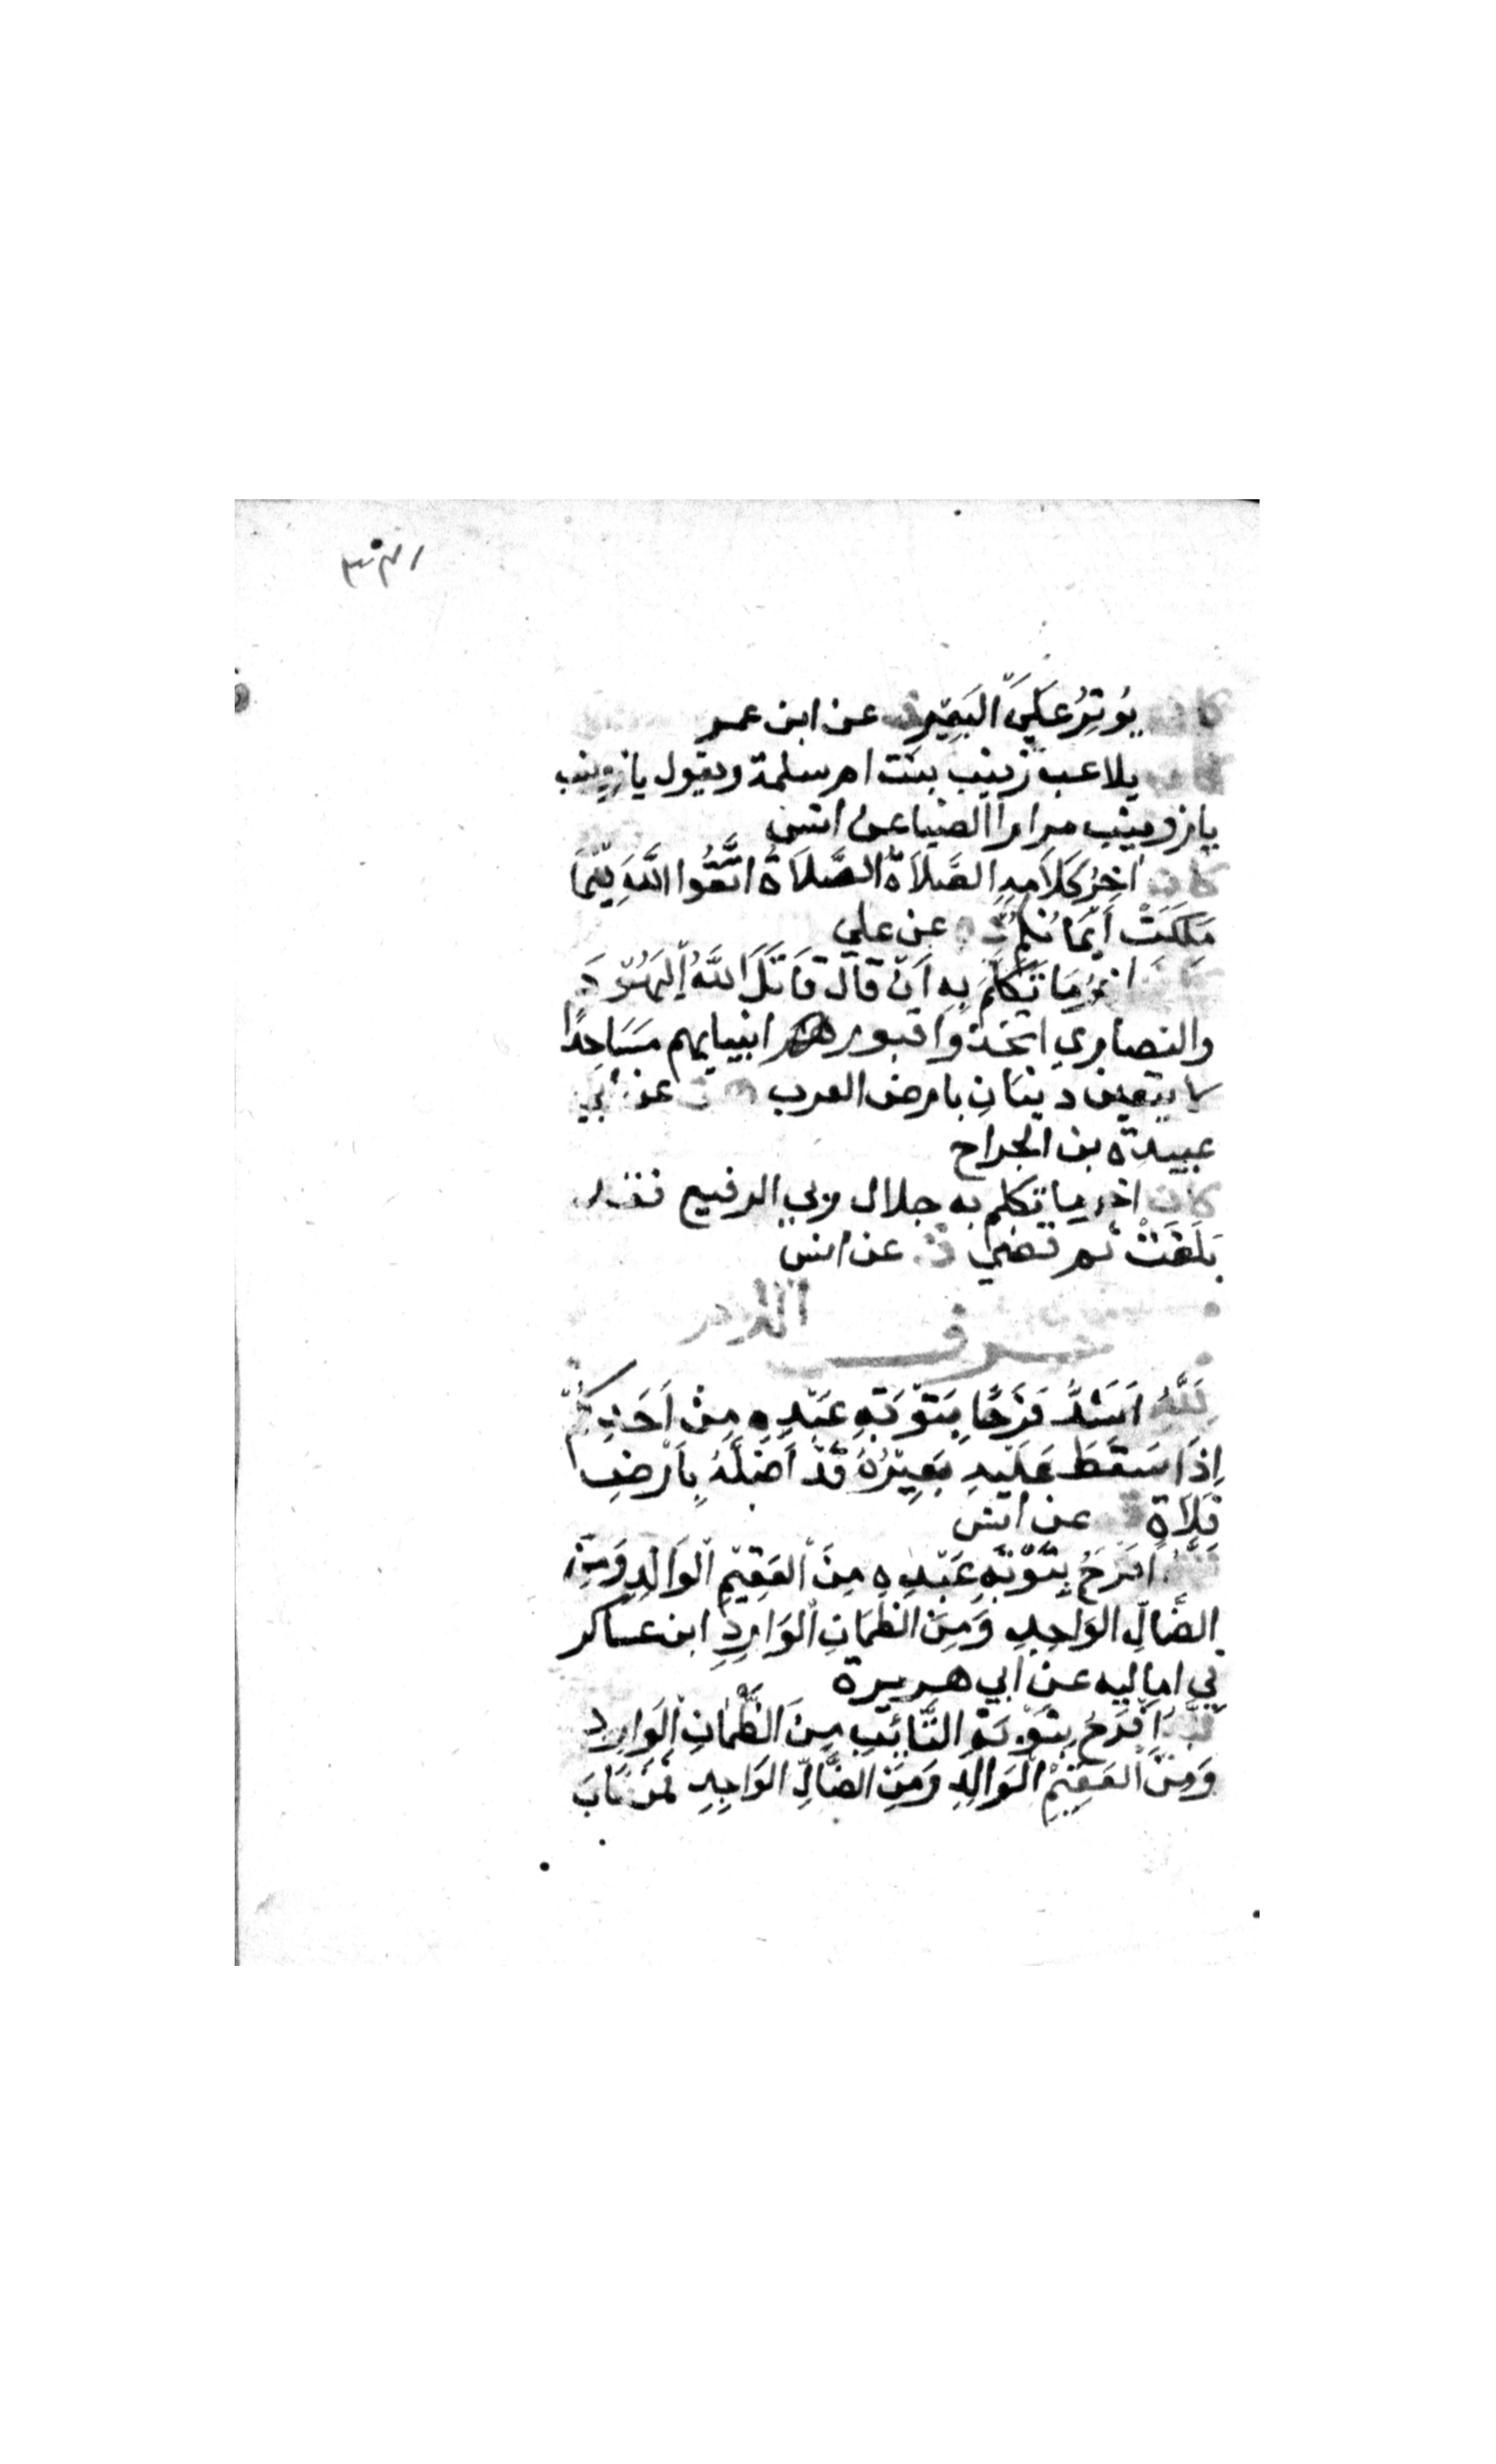 كان يُوتِرُ عَلَى البَعِيرِ ق عن ابن عمر
كان يلاعب زينب بنت ام سلمة ويقول يا زوينب
يا زوينب مرارا الضيا عن انس
كان اخِرُ كَلَامِهِ الصَّلَاةَ الصَّلَاةَ اتَّقُوا اللَّهَ فِيمَا
مَلَكَتْ أَيْمَانُكُمْ عن علي
كان اخِرُ مَا تَكَلَّمَ بِهِ اَنْ قَالَ قَاتَلَ اللَّهُ الْيَهُودَ
والنصاري اتخذوا قبور انبيايهم مَسَاجِدًا
لا يبقين دينَانِ بارض العرب عن ابي
عبيدة بن الجراح
كان اخر ما تكلم به جلال ربي الرفيع فقد
بَلَغْتُ ثم قضى عن انس
حرف اللام
لَلَّهُ اَشَدُّ فَرَحًا بِتَوْبَةِ عَبْدِهِ مِنْ اَحَدِكُمْ
اِذَا سَقَطَ عَلَيْهِ بَعِيرُهُ قَدْ اَضَلَّهُ بِاَرْضِ
فَلَاةٍ عن انس
لَلَّهُ اَفْرَحُ بِتَوْبَةِ عَبْدِهِ مِنَ الْعَقِيْمِ الْوَالِدِ وَمِنَ
الضَّالِّ الوَاجِدِ وَمِنَ الظَّمْانِ الْوَارِدِ ابن عساكر
في اماليه عن ابي هريرة
لَلَّهُ اَفْرَحُ بِتَوْبَةِ التَّائِبِ مِنَ الظَّمْانِ الْوَارِدِ
وَمِنَ الْعَقِيْمِ الْوَالِدِ وَمِنَ الضَّالِّ الوَاجِدِ فَمَنْ تَابَ